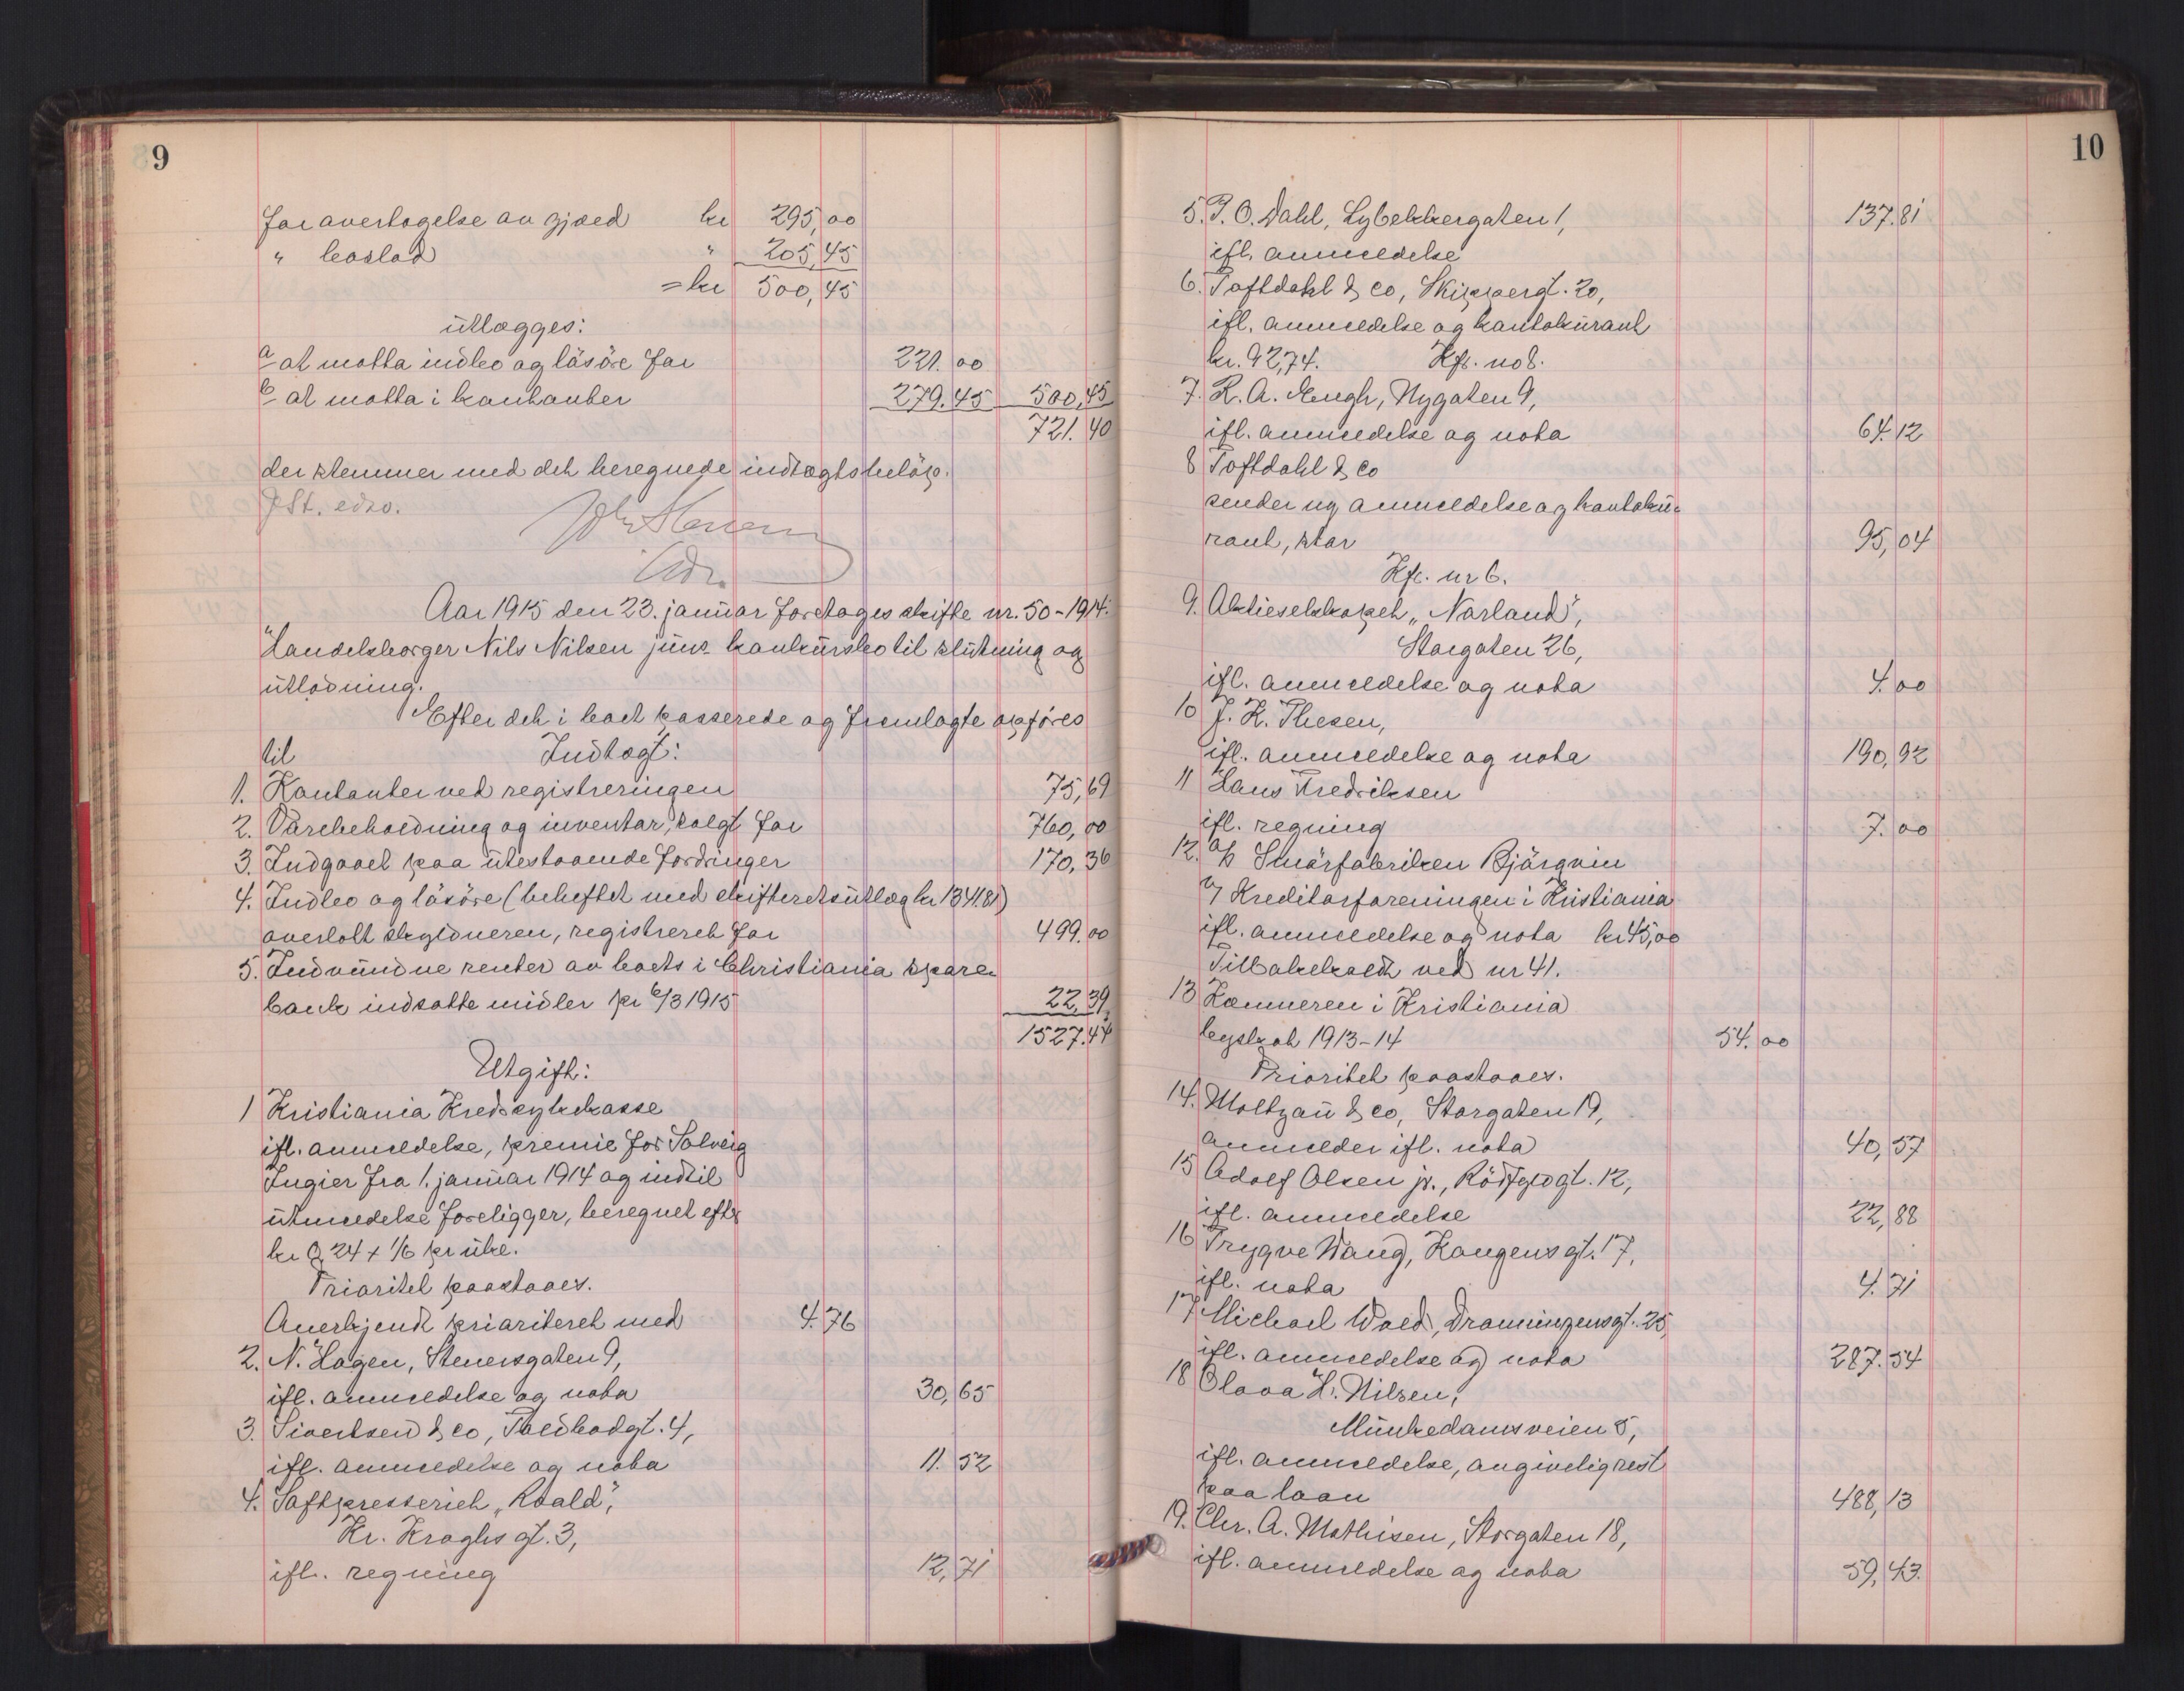 9
for overtagelse av gjæld kr 295,00
" boslod " 205,45
= kr 500,45
utlægges:
a at motta indbo og løsøre for 221.00
b at motta i kontanter 279.45 500,45
721.40
der stemmer med det beregnede indtægtsbeløp.
Aar 1915 den 23. januar foretages skifte nr. 50-1914:
Handelsborger Nils Nilsen juns konkursbo til slutning og
utlodning.
Efter det i boet passerede og fremlagte opføres
til Indtægt:
1. Kontanter ved registreringen 75,69
2. Varebeholdning og inventar, solgt for 760,00
3. Indgaaet paa utestaaende fordringer 170,36
4. Indbo og løsøre (beheftet med skifteretsutlæg kr 1341.81)
overlatt skyldneren, registreret for 499.00
5. Indvundne renter av boets i Christiania spare-
bank indsatte midler pr 6/3 1915 22,39
1527.44
Utgift:
1 Kristiania Kredssykekasse
ifl. anmeldelse, premie for Solveig
Ingier fra 1. januar 1914 og indtil
utmeldelse foreligger, beregnet efter
kr 0,24 + 1/6 pr uke.
Prioritet paastaaes.
Anerkjendt prioriteret med 4.76
2. N. Hagen, Stenersgaten 9,
ifl. anmeldelse og nota 30,65
3. Sivertsen & co, Toldbodgt. 4,
ifl. anmeldelse og nota 11.52
4. Saftpresseriet „Roald",
Kr. Kroghs gt. 3,
ifl. regning 12,71
10
5. P. O. Dahl, Lybekkergaten 1, 137.81
ifl. anmeldelse
6. Toftdahl & co, Skippergt. 20,
ifl. anmeldelse og kontokurant
kr. 92,74. Kfr. no 8.
7. R. A. Engh, Nygaten 9,
ifl. anmeldelse og nota 64.12
8 Toftdahl & co
sender ny anmeldelse og kontoku-
rant, stor 95,04
Kfr. nr 6.
9. Aktieselskapet „Norland",
Storgaten 26,
ifl. anmeldelse og nota 4.00
10 J. K. Thesen,
ifl. anmeldelse og nota 190,92
11 Hans Fredriksen
ifl. regning 7.00
12. A/s Smørfabriken Bjørgvin
v/ Kreditorforeningen i Kristiania
ifl. anmeldelse og nota kr 45,00
Tilbakekaldt ved nr 41.
13 Kæmneren i Kristiania
byskat 1913-14 54.00
Prioritet paastaaes.
14. Moltzau & co, Storgaten 19,
anmelder ifl. nota 40,57
15 Adolf Olsen jr., Rødfyldgt. 12,
ifl. anmeldelse 22,88
16 Trygve Wang, Kongens gt. 17,
ifl. nota 4.71
17 Michael Wold, Dronningensgt. 25,
ifl. anmeldelse og nota 287.54
18 Olava H. Nilsen,
Munkedamsveien 5,
ifl. anmeldelse, angivelig rest
paa laan 488,13
19. Chr. A. Mathisen, Storgaten 18,
ifl. anmeldelse og nota 59,43.